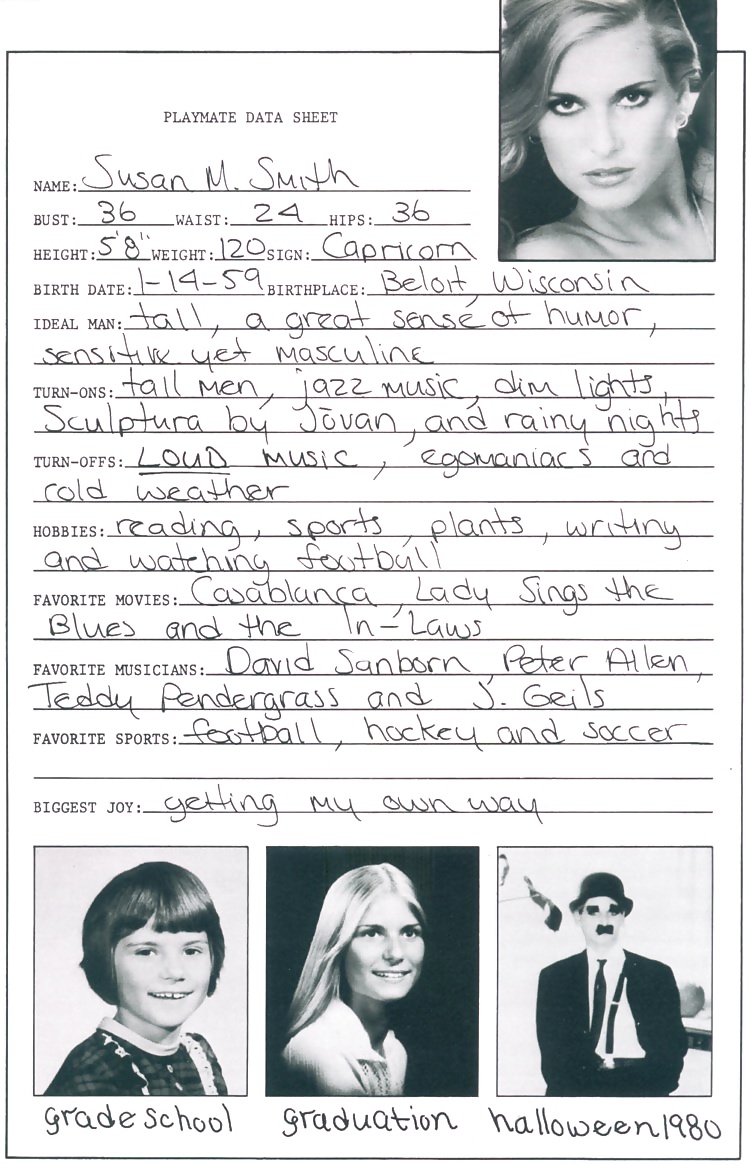 PLAYMATE DATA SHEET
NAME: Susan M. Smith
BUST: 36 WAIST: 24 HIPS: 36
HEIGHT: 5'8" WEIGHT: 120 SIGN: Capricorn
BIRTH DATE: 1-14-59 BIRTHPLACE: Beloit, Wisconsin
IDEAL MAN: tall, a great sense of humor,
sensitive yet masculine
TURN-ONS: tall men, jazz music, dim lights,
Sculptura by Jōvan, and rainy nights
TURN-OFFS: LOUD music, egomaniacs and
cold weather
HOBBIES: reading, sports, plants, writing
and watching football
FAVORITE MOVIES: Casablanca, Lady Sings the
Blues and the In-Laws
FAVORITE MUSICIANS: David Sanborn, Peter Allen,
Teddy Pendergrass and J. Geils
FAVORITE SPORTS: football, hockey and soccer
BIGGEST JOY: getting my own way
grade school graduation halloween 1980